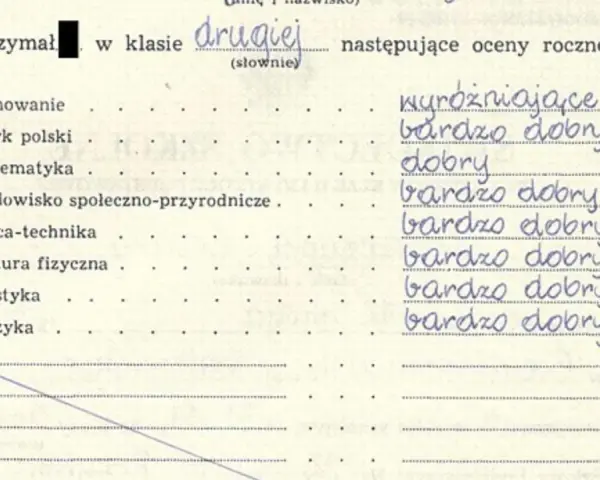 (imię i nazwisko)
zymał w klasie drugiej następujące oceny roczne
(słownie)
nowanie wyróżniające
k polski bardzo dobry
ematyka dobry
lowisko społeczno-przyrodnicze bardzo dobry
ca-technika bardzo dobry
ura fizyczna bardzo dobry
styka bardzo dobry
zyka bardzo dobry